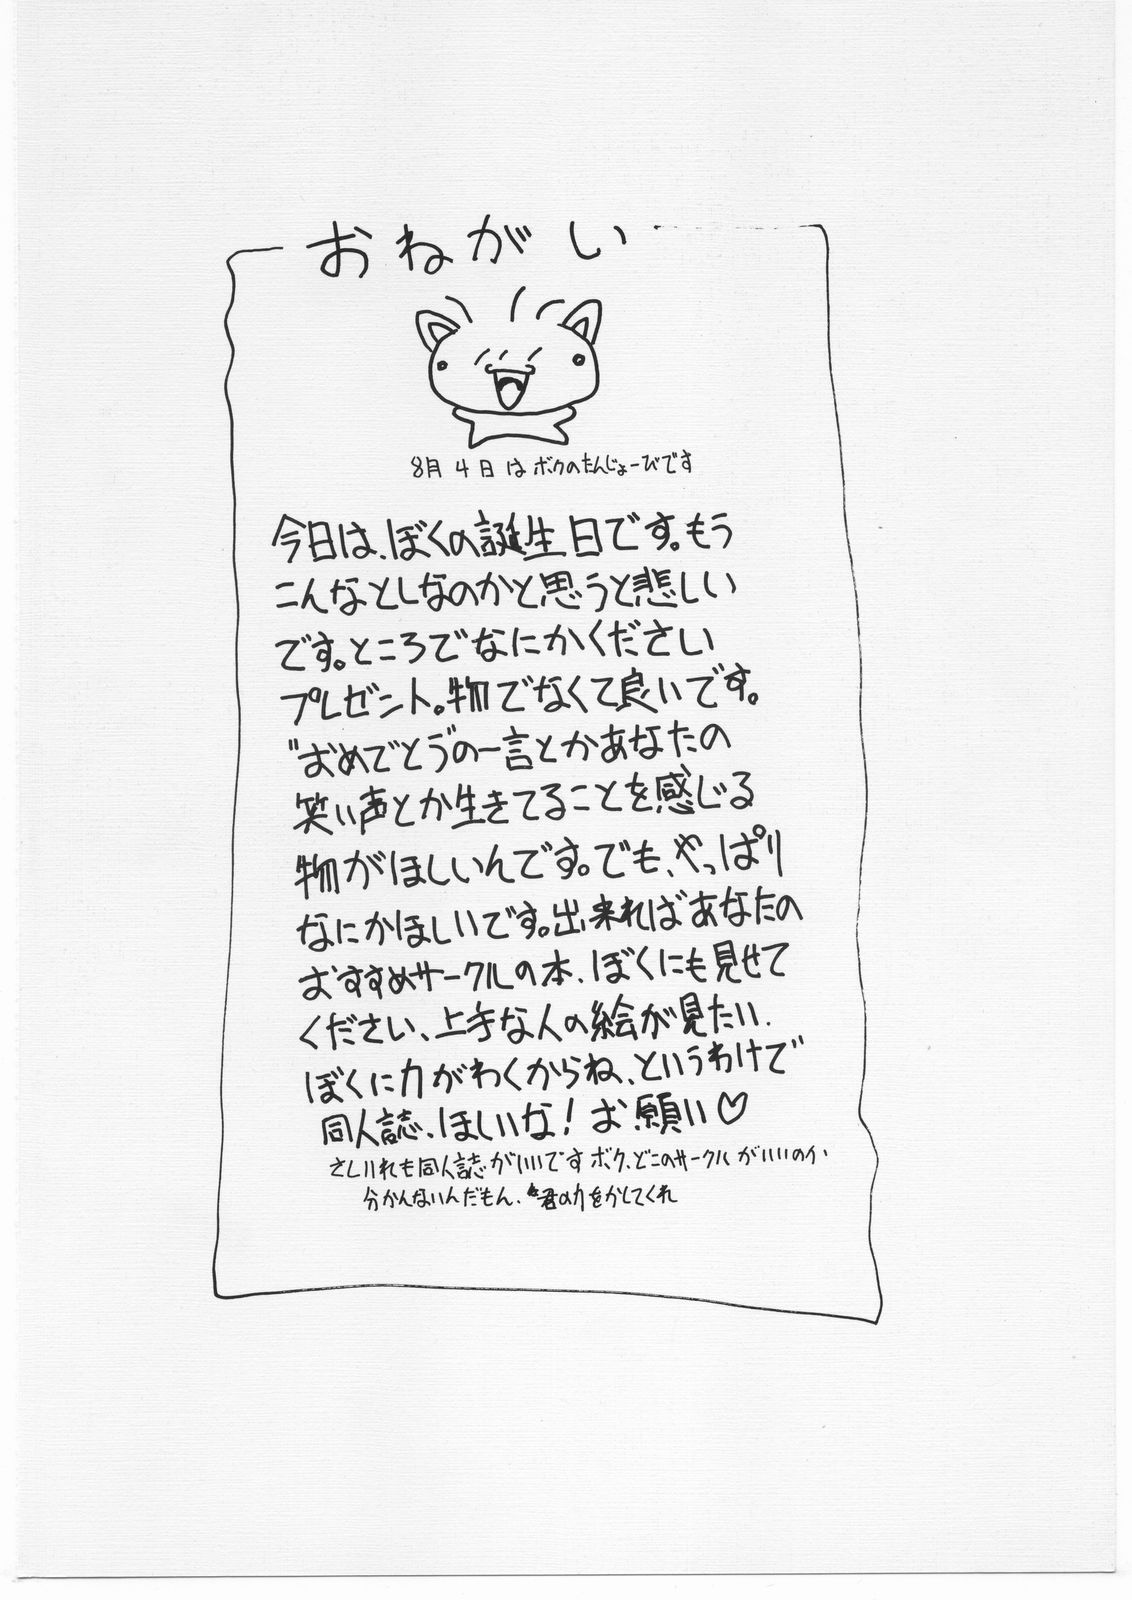 おねがい
8月4日はボクのたんじょーびです
今日は、ぼくの誕生日です。もう
こんなとしなのかと思うと悲しい
です。ところでなにかください
プレゼント。物でなくて良いです。
"おめでとう"の一言とかあなたの
笑い声とか生きてることを感じる
物がほしいんです。でも、やっぱり
なにかほしいです。出来ればあなたの
おすすめサークルの本、ぼくにも見せて
ください、上手な人の絵が見たい.
ぼくに力がわくからね、というわけで
同人誌、ほしいな!お願い♡
さしいれも同人誌がいいですボク、どこのサークルがいいのか
分かんないんだもん、君の力をかしてくれ